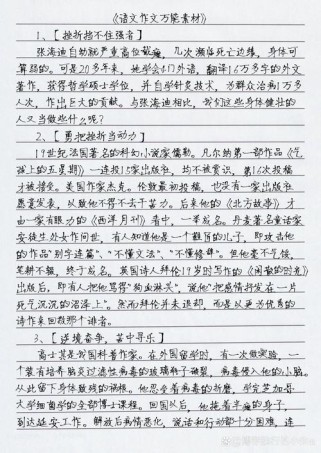 《语文作文万能素材》
1、【挫折挡不住强者】
张海迪自幼就严重高位截瘫，几次濒临死亡边缘，身体可
算弱的。可是20多年来，她学会4门外语，翻译16万多字的外文
著作，获得哲学硕士学位，并自学针灸技术，为群众治病1万多
人次，作出巨大的贡献。与张海迪相比，我们这些身体健壮的
人又当做些什么呢？
2、【勇把挫折当动力】
19世纪法国著名的科幻小说家儒勒。凡尔纳第一部作品《气
球上的五星期》一连投15家出版社，均不被赏识，第16次投稿
才被接受。美国作家杰克。伦敦最初投稿，也没有一家出版社
愿意发表，以致他不得不去干苦力。后来他的《北方故事》才
由一家有眼力的《西洋月刊》看中，一举成名。丹麦著名童话家
安徒生处女作问世，有人知道他是一个鞋匠的儿子，即攻击他
的作品"别字连篇"、"不懂文法"、"不懂修辞"。但他毫不气馁，
笔耕不辍，终于成名。英国诗人拜伦19岁时写作的《闲散的时光》
出版后，即有人把他骂得"狗血淋头"，说他"把感情抒发在一片
死气沉沉的沼泽上"。然而拜伦并未退却，而是以更为优秀的
诗作来回敬那个诽者。
3、【逆境奋争，苦中寻乐】
高士其是我国科普作家。在外国留学时，有一次做实验，一
个装有培养脑炎过滤性病毒的玻璃瓶子破裂，病毒侵入他的小脑。
从此留下身体致残的祸根。他忍受着病毒的折磨，学完芝加哥
大学细菌学的全部博士课程。回国以后，他拖着半瘫的身子，
到达延安工作。解放后病情恶化，说话和行动都十分困难，连